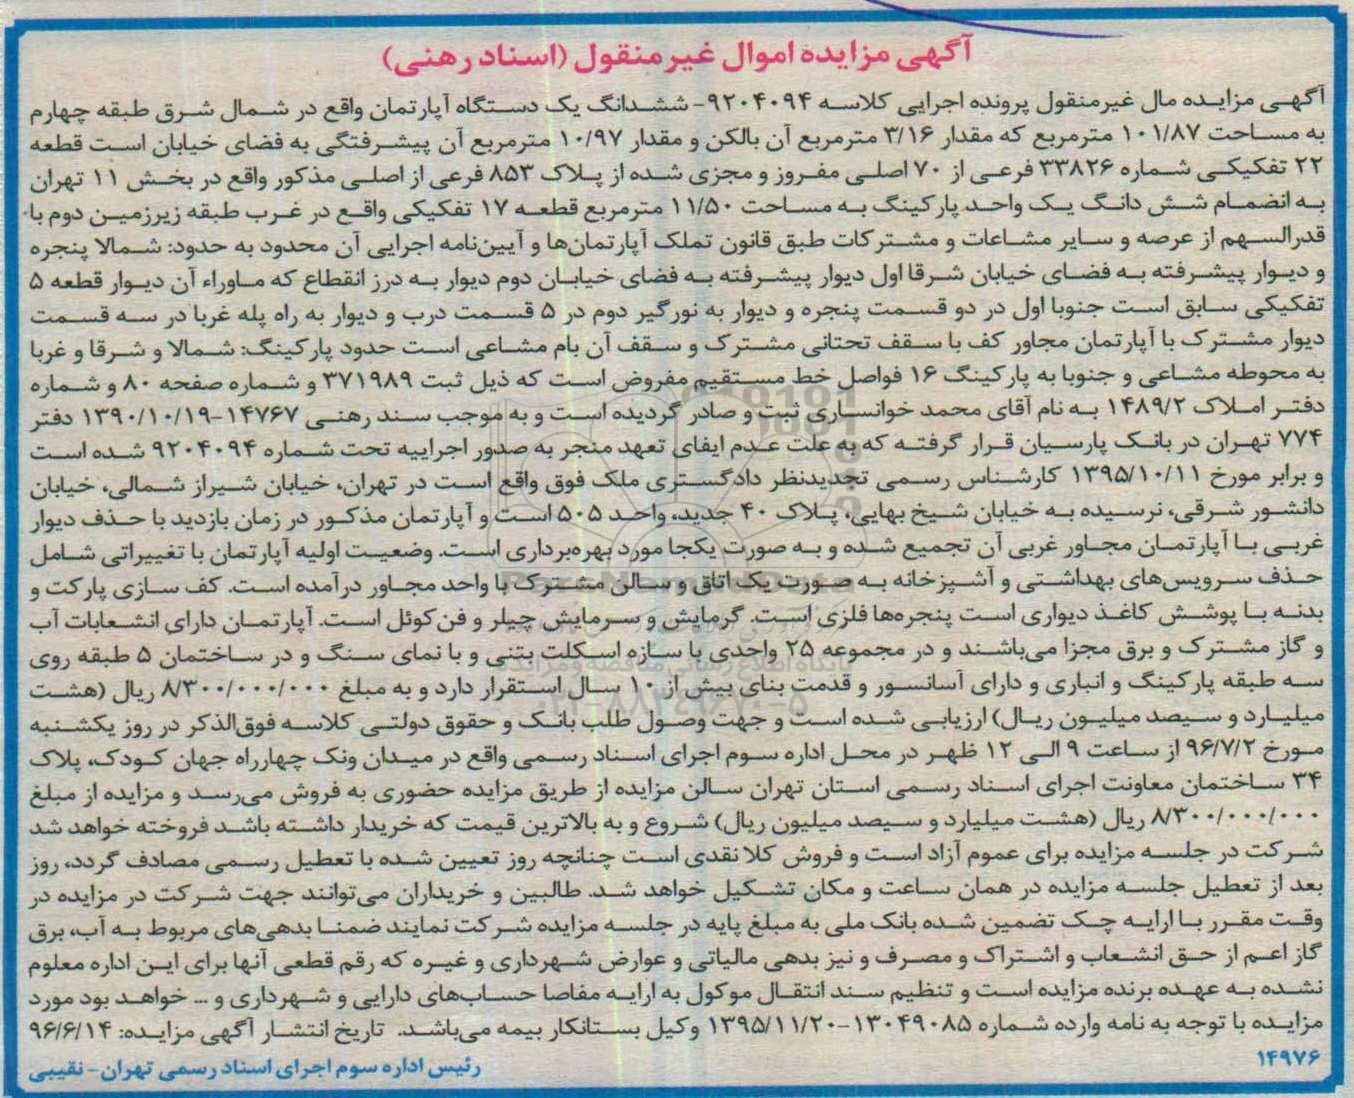 آگهی مزایده اموال غیرمنقول (اسناد رهنی)
آگهـی مزایـده مال غیرمنقول پرونده اجرایی کلاسه ۹۲۰۴۰۹۴- ششدانگ یک دستگاه آپارتمان واقع در شمال شرق طبقه چهارم
به مساحت ۱۰۱/۸۷ مترمربع که مقدار ۳/۱۶ مترمربع آن بالکن و مقدار ۱۰/۹۷ مترمربع آن پیشرفتگی به فضای خیابان است قطعه
۲۲ تفکیکی شماره ۳۳۸۲۶ فرعی از ۷۰ اصلی مفروز و مجزی شده از پلاک ۸۵۳ فرعی از اصلی مذکور واقع در بخش ۱۱ تهران
به انضمام شش دانگ یک واحد پارکینگ به مساحت ۱۱/۵۰ مترمربع قطعه ۱۷ تفکیکی واقع در غرب طبقه زیرزمین دوم با
قدرالسهم از عرصه و سایر مشاعات و مشترکات طبق قانون تملک آپارتمان‌ها و آیین‌نامه اجرایی آن محدود به حدود: شمالا پنجره
و دیوار پیشرفته به فضای خیابان شرقا اول دیوار پیشرفته به فضای خیابان دوم دیوار به درز انقطاع که ماوراء آن دیوار قطعه ۵
تفکیکی سابق است جنوبا اول در دو قسمت پنجره و دیوار به نورگیر دوم در ۵ قسمت درب و دیوار به راه پله غربا در سه قسمت
دیوار مشترک با آپارتمان مجاور کف با سقف تحتانی مشترک و سقف آن بام مشاعی است حدود پارکینگ: شمالا و شرقا و غربا
به محوطه مشاعی و جنوبا به پارکینگ ۱۶ فواصل خط مستقیم مفروض است که ذیل ثبت ۳۷۱۹۸۹ و شماره صفحه ۸۰ و شماره
دفتر املاک ۱۴۸۹/۲ به نام آقای محمد خوانساری ثبت و صادر گردیده است و به موجب سند رهنی ۱۴۷۶۷-۱۳۹۰/۱۰/۱۹ دفتر
۷۷۴ تهران در بانک پارسیان قرار گرفته که به علت عدم ایفای تعهد منجر به صدور اجراییه تحت شماره ۹۲۰۴۰۹۴ شده است
و برابر مورخ ۱۳۹۵/۱۰/۱۱ کارشناس رسمی تجدیدنظر دادگستری ملک فوق واقع است در تهران، خیابان شیراز شمالی، خیابان
دانشور شرقی، نرسیده به خیابان شیخ بهایی، پلاک ۴۰ جدید، واحد ۵۰۵ است و آپارتمان مذکور در زمان بازدید با حذف دیوار
غربی با آپارتمان مجاور غربی آن تجمیع شده و به صورت یکجا مورد بهره‌برداری است. وضعیت اولیه آپارتمان با تغییراتی شامل
حذف سرویس‌های بهداشتی و آشپزخانه به صورت یک اتاق و سالن مشترک با واحد مجاور درآمده است. کف سازی پارکت و
بدنه با پوشش کاغذ دیواری است پنجره‌ها فلزی است. گرمایش و سرمایش چیلر و فن‌کوئل است. آپارتمان دارای انشعابات آب
و گاز مشترک و برق مجزا می‌باشند و در مجموعه ۲۵ واحدی با سازه اسکلت بتنی و با نمای سنگ و در ساختمان ۵ طبقه روی
سه طبقه پارکینگ و انباری و دارای آسانسور و قدمت بنای بیش از ۱۰ سال استقرار دارد و به مبلغ ۸/۳۰۰/۰۰۰/۰۰۰ ریال (هشت
میلیارد و سیصد میلیون ریال) ارزیابی شده است و جهت وصول طلب بانک و حقوق دولتی کلاسه فوق‌الذکر در روز یکشنبه
مورخ ۹۶/۷/۲ از ساعت ۹ الی ۱۲ ظهر در محل اداره سوم اجرای اسناد رسمی واقع در میدان ونک چهارراه جهان کودک، پلاک
۳۴ ساختمان معاونت اجرای اسناد رسمی استان تهران سالن مزایده از طریق مزایده حضوری به فروش می‌رسد و مزایده از مبلغ
۸/۳۰۰/۰۰۰/۰۰۰ ریال (هشت میلیارد و سیصد میلیون ریال) شروع و به بالاترین قیمت که خریدار داشته باشد فروخته خواهد شد
شرکت در جلسه مزایده برای عموم آزاد است و فروش کلا نقدی است چنانچه روز تعیین شده با تعطیل رسمی مصادف گردد، روز
بعد از تعطیل جلسه مزایده در همان ساعت و مکان تشکیل خواهد شد. طالبین و خریداران می‌توانند جهت شرکت در مزایده در
وقت مقرر با ارایه چک تضمین شده بانک ملی به مبلغ پایه در جلسه مزایده شرکت نمایند ضمنا بدهی‌های مربوط به آب، برق
گاز اعم از حق انشعاب و اشتراک و مصرف و نیز بدهی مالیاتی و عوارض شهرداری و غیره که رقم قطعی آنها برای این اداره معلوم
نشده به عهده برنده مزایده است و تنظیم سند انتقال موکول به ارایه مفاصا حساب‌های دارایی و شهرداری و ... خواهد بود مورد
مزایده با توجه به نامه وارده شماره ۱۳۰۴۹۰۸۵-۱۳۹۵/۱۱/۲۰ وکیل بستانکار بیمه می‌باشد. تاریخ انتشار آگهی مزایده: ۹۶/۶/۱۴
۱۴۹۷۶
رئیس اداره سوم اجرای اسناد رسمی تهران- نقیبی